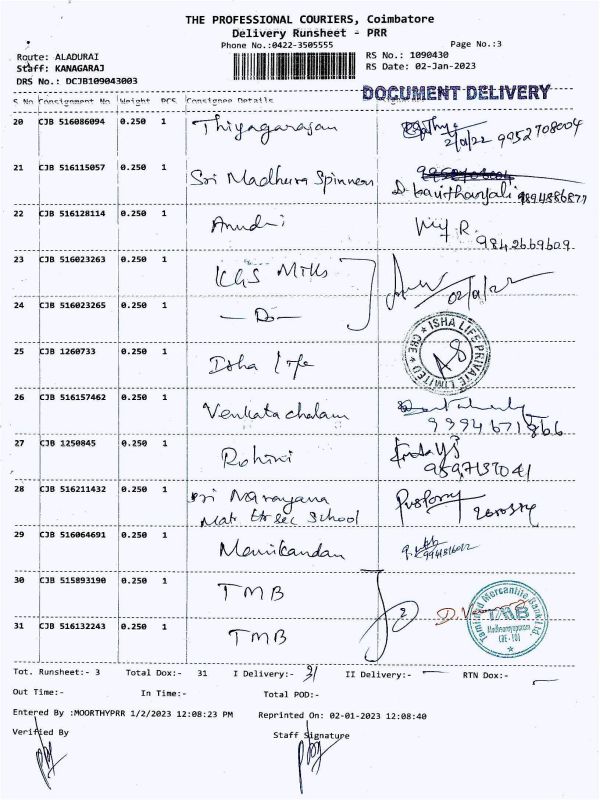 THE PROFESSIONAL COURIERS, Coimbatore
Delivery Runsheet - PRR
Phone No.:0422-3505555
Page No.:3
Route: ALADURAI
RS No.: 1090430
Staff: KANAGARAJ
RS Date: 02-Jan-2023
DRS No.: DCJB109043003
DOCUMENT DELIVERY
S No Consignment No Weight PCS Consignee Details
20 CJB 516086094 0.250 1 Thiyagarajan
2/01/22 9952708004
21 CJB 516115057 0.250 1 Sri Madhura Spinners
D. kavithanjali 9894886877
22 CJB 516128114 0.250 1
R. 9842669609
23 CJB 516023263 0.250 1 KGS Mills
02/01/22
24 CJB 516023265 0.250 1 — Do —
25 CJB 1260733 0.250 1 Isha life
ISHA LIFE PRIVATE LIMITED ★ CBE ★
A8
26 CJB 516157462 0.250 1 Venkatachalam
27 CJB 1250845 0.250 1 Rohini
9597137041
28 CJB 516211432 0.250 1 Sri Narayana
Matr Hr Sec School
29 CJB 516064691 0.250 1 Manikandan
30 CJB 515893190 0.250 1 TMB
2
Tamilnad Mercantile Bank Ltd.
TMB
31 CJB 516132243 0.250 1 TMB
Tot. Runsheet:- 3 Total Dox:- 31 I Delivery:- 31 II Delivery:- — RTN Dox:- —
Out Time:- In Time:- Total POD:-
Entered By :MOORTHYPRR 1/2/2023 12:08:23 PM Reprinted On: 02-01-2023 12:08:40
Verified By Staff Signature